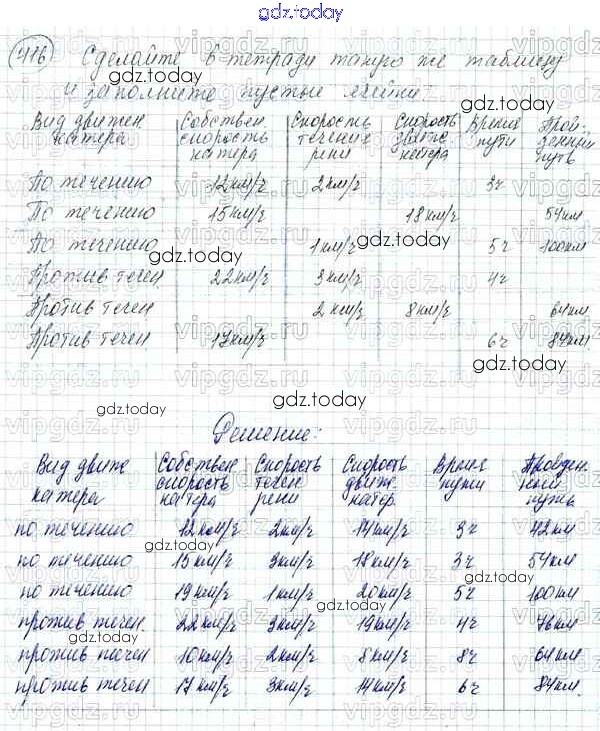 gdz.today
416 Сделайте в тетради такую же таблицу
и заполните пустые ячейки.
Вид движен. катера Собствен. скорость катера Скорость течения реки Скорость движ. катера Время пути Пройденный путь
По течению 12км/ч 2км/ч 3ч
По течению 15км/ч 18км/ч 54км
По течению 1км/ч 5ч 100км
Против течен 22км/ч 3км/ч 4ч
Против течен 2км/ч 8км/ч 64км
Против течен 17км/ч 6ч 84км
Решение:
Вид движе катера Собствен скорость катера Скорость течен. реки Скорость движ. катер. Время пути Пройден. ный путь
по течению 12км/ч 2км/ч 14км/ч 3ч 42км
по течению 15км/ч 3км/ч 18км/ч 3ч 54км
по течению 19км/ч 1км/ч 20км/ч 5ч 100км
против течен. 22км/ч 3км/ч 19км/ч 4ч 76км
против течен 10км/ч 2км/ч 8км/ч 8ч 64км
против течен 17км/ч 3км/ч 14км/ч 6ч 84км